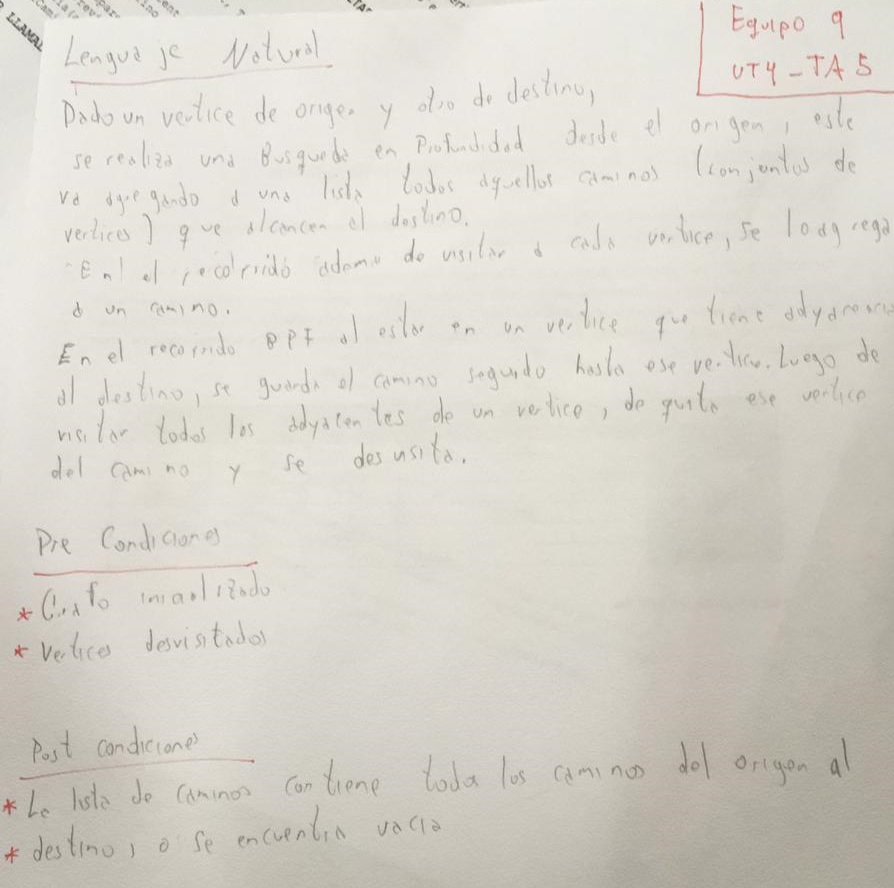 Equipo 9
UT4 - TA 5
Lenguaje Natural
Dado un vertice de origen y otro de destino,
se realiza una Busqueda en Profundidad desde el origen, este
va agregando a una lista todos aquellos caminos (conjuntos de
vertices) que alcancen al destino.
En el recorrido ademas de visitar a cada vertice, se lo agrega
a un camino.
En el recorrido BPF al estar en un vertice que tiene adyacencia
al destino, se guarda el camino seguido hasta ese vertice. Luego de
visitar todos los adyacentes de un vertice, de quita ese vertice
del camino y se desvisita.
Pre Condiciones
* Grafo inicializado
* Vertices desvisitados
Post condiciones
* La lista de caminos contiene toda los caminos del origen al
* destino, o se encuentra vacia